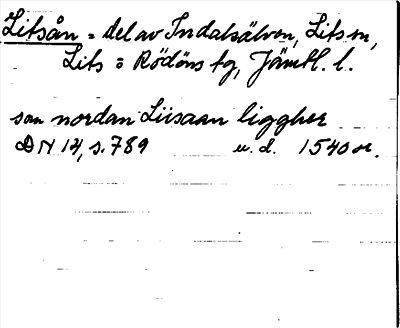 Litsån = del av Indalsälven, Lits sn,
Lits o Rödöns tg, Jämtl. l.
som nordan Liisaan liggher
DN 14, s. 789 u. d. 1540